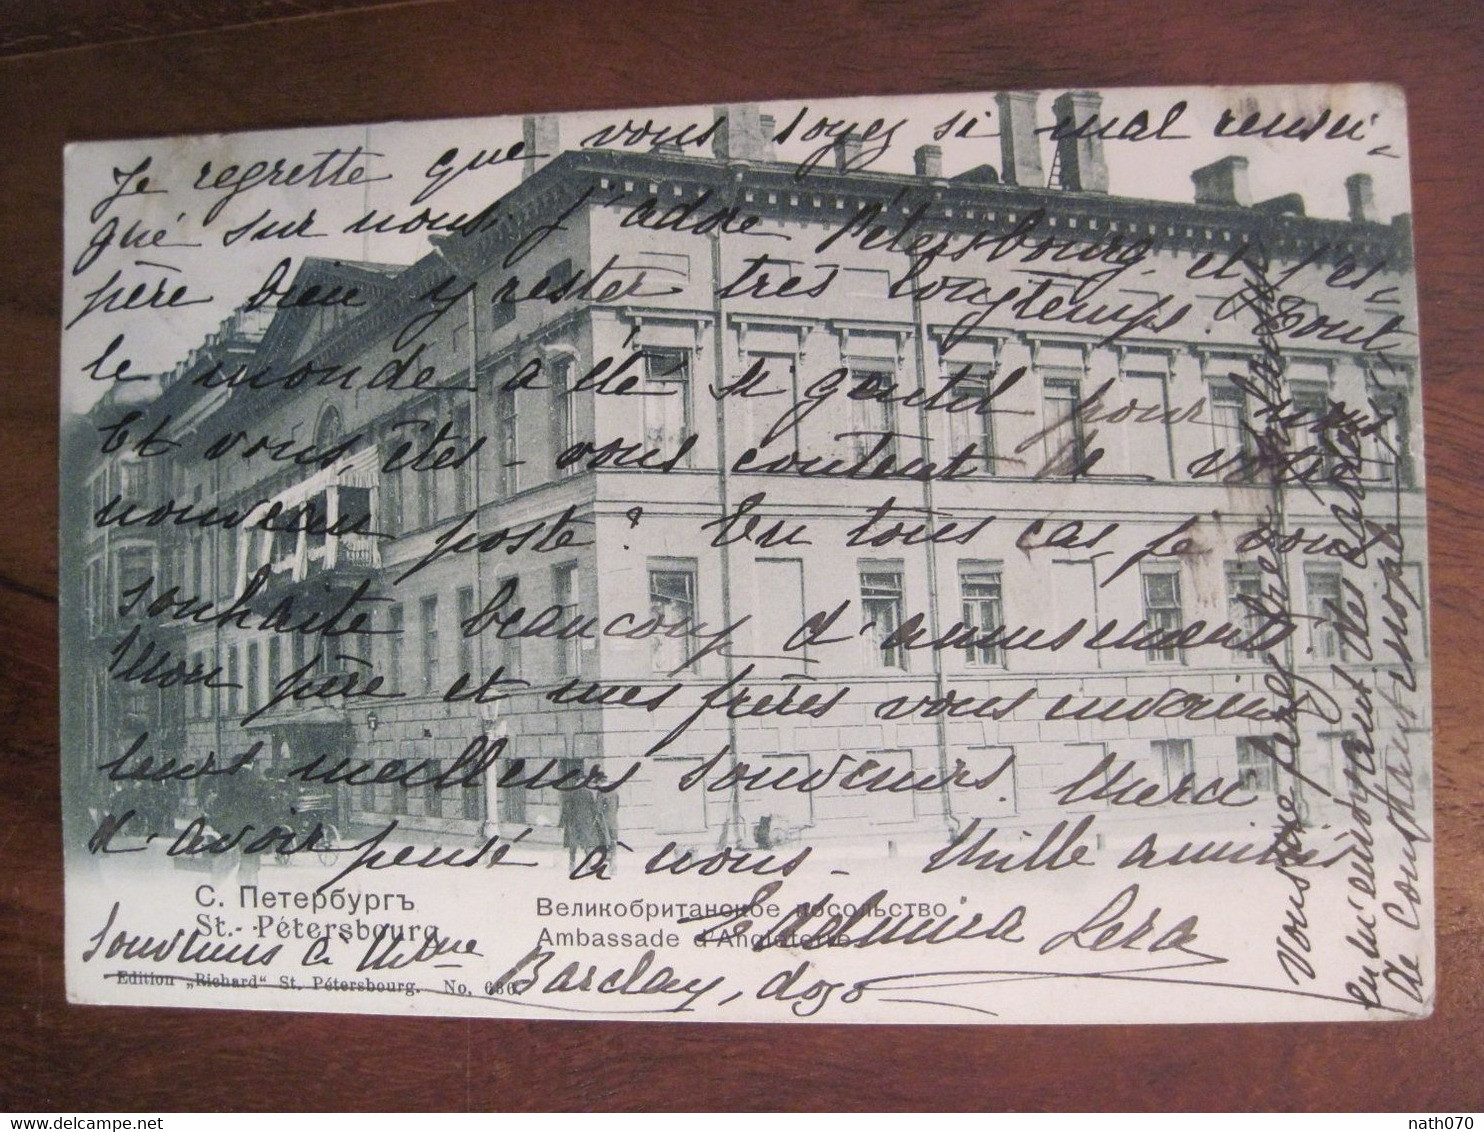 Je regrette que vous soyez si mal rensei-
gné sur nous, J'adore Pétersbourg et j'es-
père bien y rester très longtemps. Tout
le monde a été si gentil pour nous
Et vous, êtes-vous content de votre
nouveau poste? En tous cas, je vous
souhaite beaucoup d'amusements.
Mon père et mes frères vous envoient
leurs meilleurs souvenirs. Merci
d'avoir pensé à nous - Mille amitiés
Lera
Souvenirs à
Barclay, dozo
Vous me ferez très plaisir
en m'envoyant des cartes
de Constantinople
С. Петербургъ
St.- Pétersbourg
Великобританское посольство
Ambassade d'Angleterre
Edition „Richard" St. Pétersbourg. No, 636.
nath070
www.delcampe.net